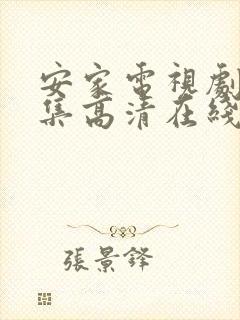 安家電視劇
集高清在綫
張景鋒